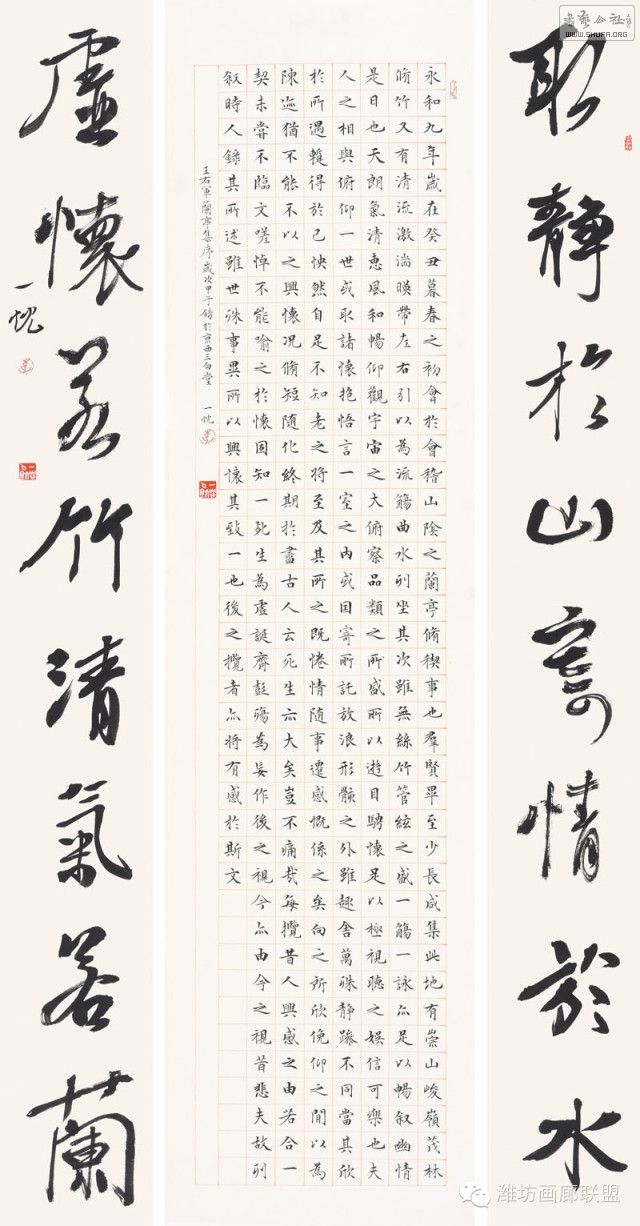 取静於山寄情於水
永和九年歲在癸丑暮春之初會於會稽山陰之蘭亭脩稧事也羣賢畢至少長咸集此地有崇山峻嶺茂林
脩竹又有清流激湍暎帶左右引以為流觴曲水列坐其次雖無絲竹管絃之盛一觴一詠亦足以暢叙幽情
是日也天朗氣清惠風和暢仰觀宇宙之大俯察品類之盛所以遊目騁懷足以極視聽之娛信可樂也夫
人之相與俯仰一世或取諸懷抱悟言一室之内或因寄所託放浪形骸之外雖趣舍萬殊靜躁不同當其欣
於所遇蹔得於己怏然自足不知老之將至及其所之既惓情隨事遷感慨係之矣向之所欣俛仰之閒以為
陳迹猶不能不以之興懷況脩短隨化終期於盡古人云死生亦大矣豈不痛哉每攬昔人興感之由若合一
契未嘗不臨文嗟悼不能喻之於懷固知一死生為虛誕齊彭殤為妄作後之視今亦由今之視昔悲夫故列
叙時人錄其所述雖世殊事異所以興懷其致一也後之攬者亦將有感於斯文
王右軍蘭亭集序歲次甲午錄於京西三白堂 一忱
虛懷若竹清氣若蘭
一忱
WWW.SHUFA.ORG
潍坊画廊联盟